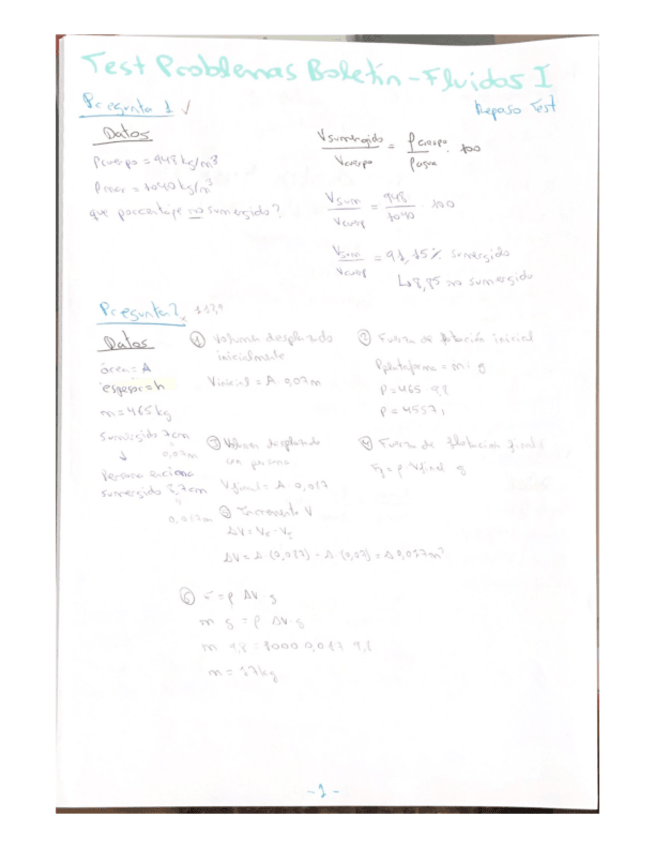 Test Problemas Boletín - Fluidos I
Repaso Test
Pregunta 1 ✓
Datos
ρcuerpo = 948 kg/m³
ρmar = 1040 kg/m³
que porcentaje no sumergido?
Vsumergido / Vcuerpo = ρcuerpo / ρagua · 100
Vsum / Vcuerp = 948 / 1040 · 100
Vsum / Vcuerp = 91,15% sumergido
↳ 8,85 no sumergido
Pregunta 2
Datos
área = A
espesor = h
m = 465 kg
sumergido 7cm
0,07m
↓
Persona encima
sumergido
① Volumen desplazado
inicialmente
Vinicial = A · 0,07m
② Fuerza de flotación inicial
Pplataforma = m · g
P = 465 · 9,8
P = 4557
③ Volumen desplazado
con persona
Vfinal = A ·
④ Fuerza de flotación final
Ff = ρ · Vfinal · g
Incremento V
ΔV =
ΔV = A
= ρ · ΔV · g
m · g = ρ · ΔV · g
m · 9,8 = 1000 · 0,017 · 9,8
m = 17kg
- 1 -